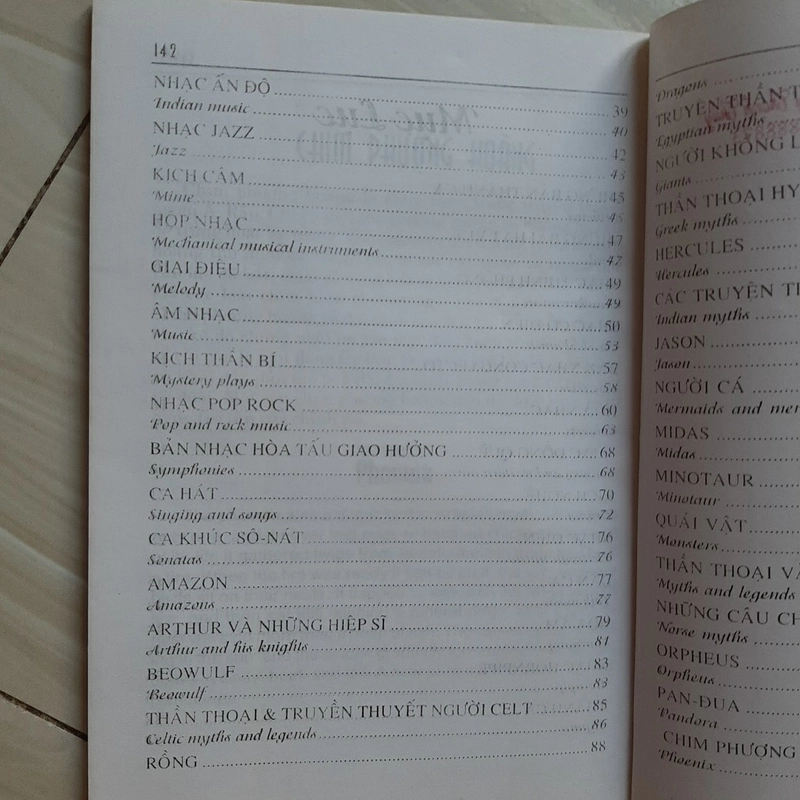 142
NHẠC ẤN ĐỘ 39
Indian music 40
NHẠC JAZZ 42
Jazz 43
KỊCH CÂM 45
Mime 45
HỘP NHẠC 47
Mechanical musical instruments 47
GIAI ĐIỆU 49
Melody 49
ÂM NHẠC 50
Music 53
KỊCH THẦN BÍ 57
Mystery plays 58
NHẠC POP ROCK 60
Pop and rock music 63
BẢN NHẠC HÒA TẤU GIAO HƯỞNG 68
Symphonies 68
CA HÁT 70
Singing and songs 72
CA KHÚC SÔ-NÁT 76
Sonatas 76
AMAZON 77
Amazons 77
ARTHUR VÀ NHỮNG HIỆP SĨ 79
Arthur and his knights 81
BEOWULF 83
Beowulf 83
THẦN THOẠI & TRUYỀN THUYẾT NGƯỜI CELT 85
Celtic myths and legends 86
RỒNG 88
Dragons
TRUYỆN THẦN
Egyptian myths
NGƯỜI KHỔNG
Giants
THẦN THOẠI HY
Greek myths
HERCULES
Hercules
CÁC TRUYỆN
Indian myths
JASON
Jason
NGƯỜI CÁ
Mermaids and
MIDAS
Midas
MINOTAUR
Minotaur
QUÁI VẬT
Monsters
THẦN THOẠI
Myths and legends
NHỮNG CÂU
Norse myths
ORPHEUS
Orpheus
PAN-ĐUA
Pandora
CHIM PHƯỢNG
Phoenix